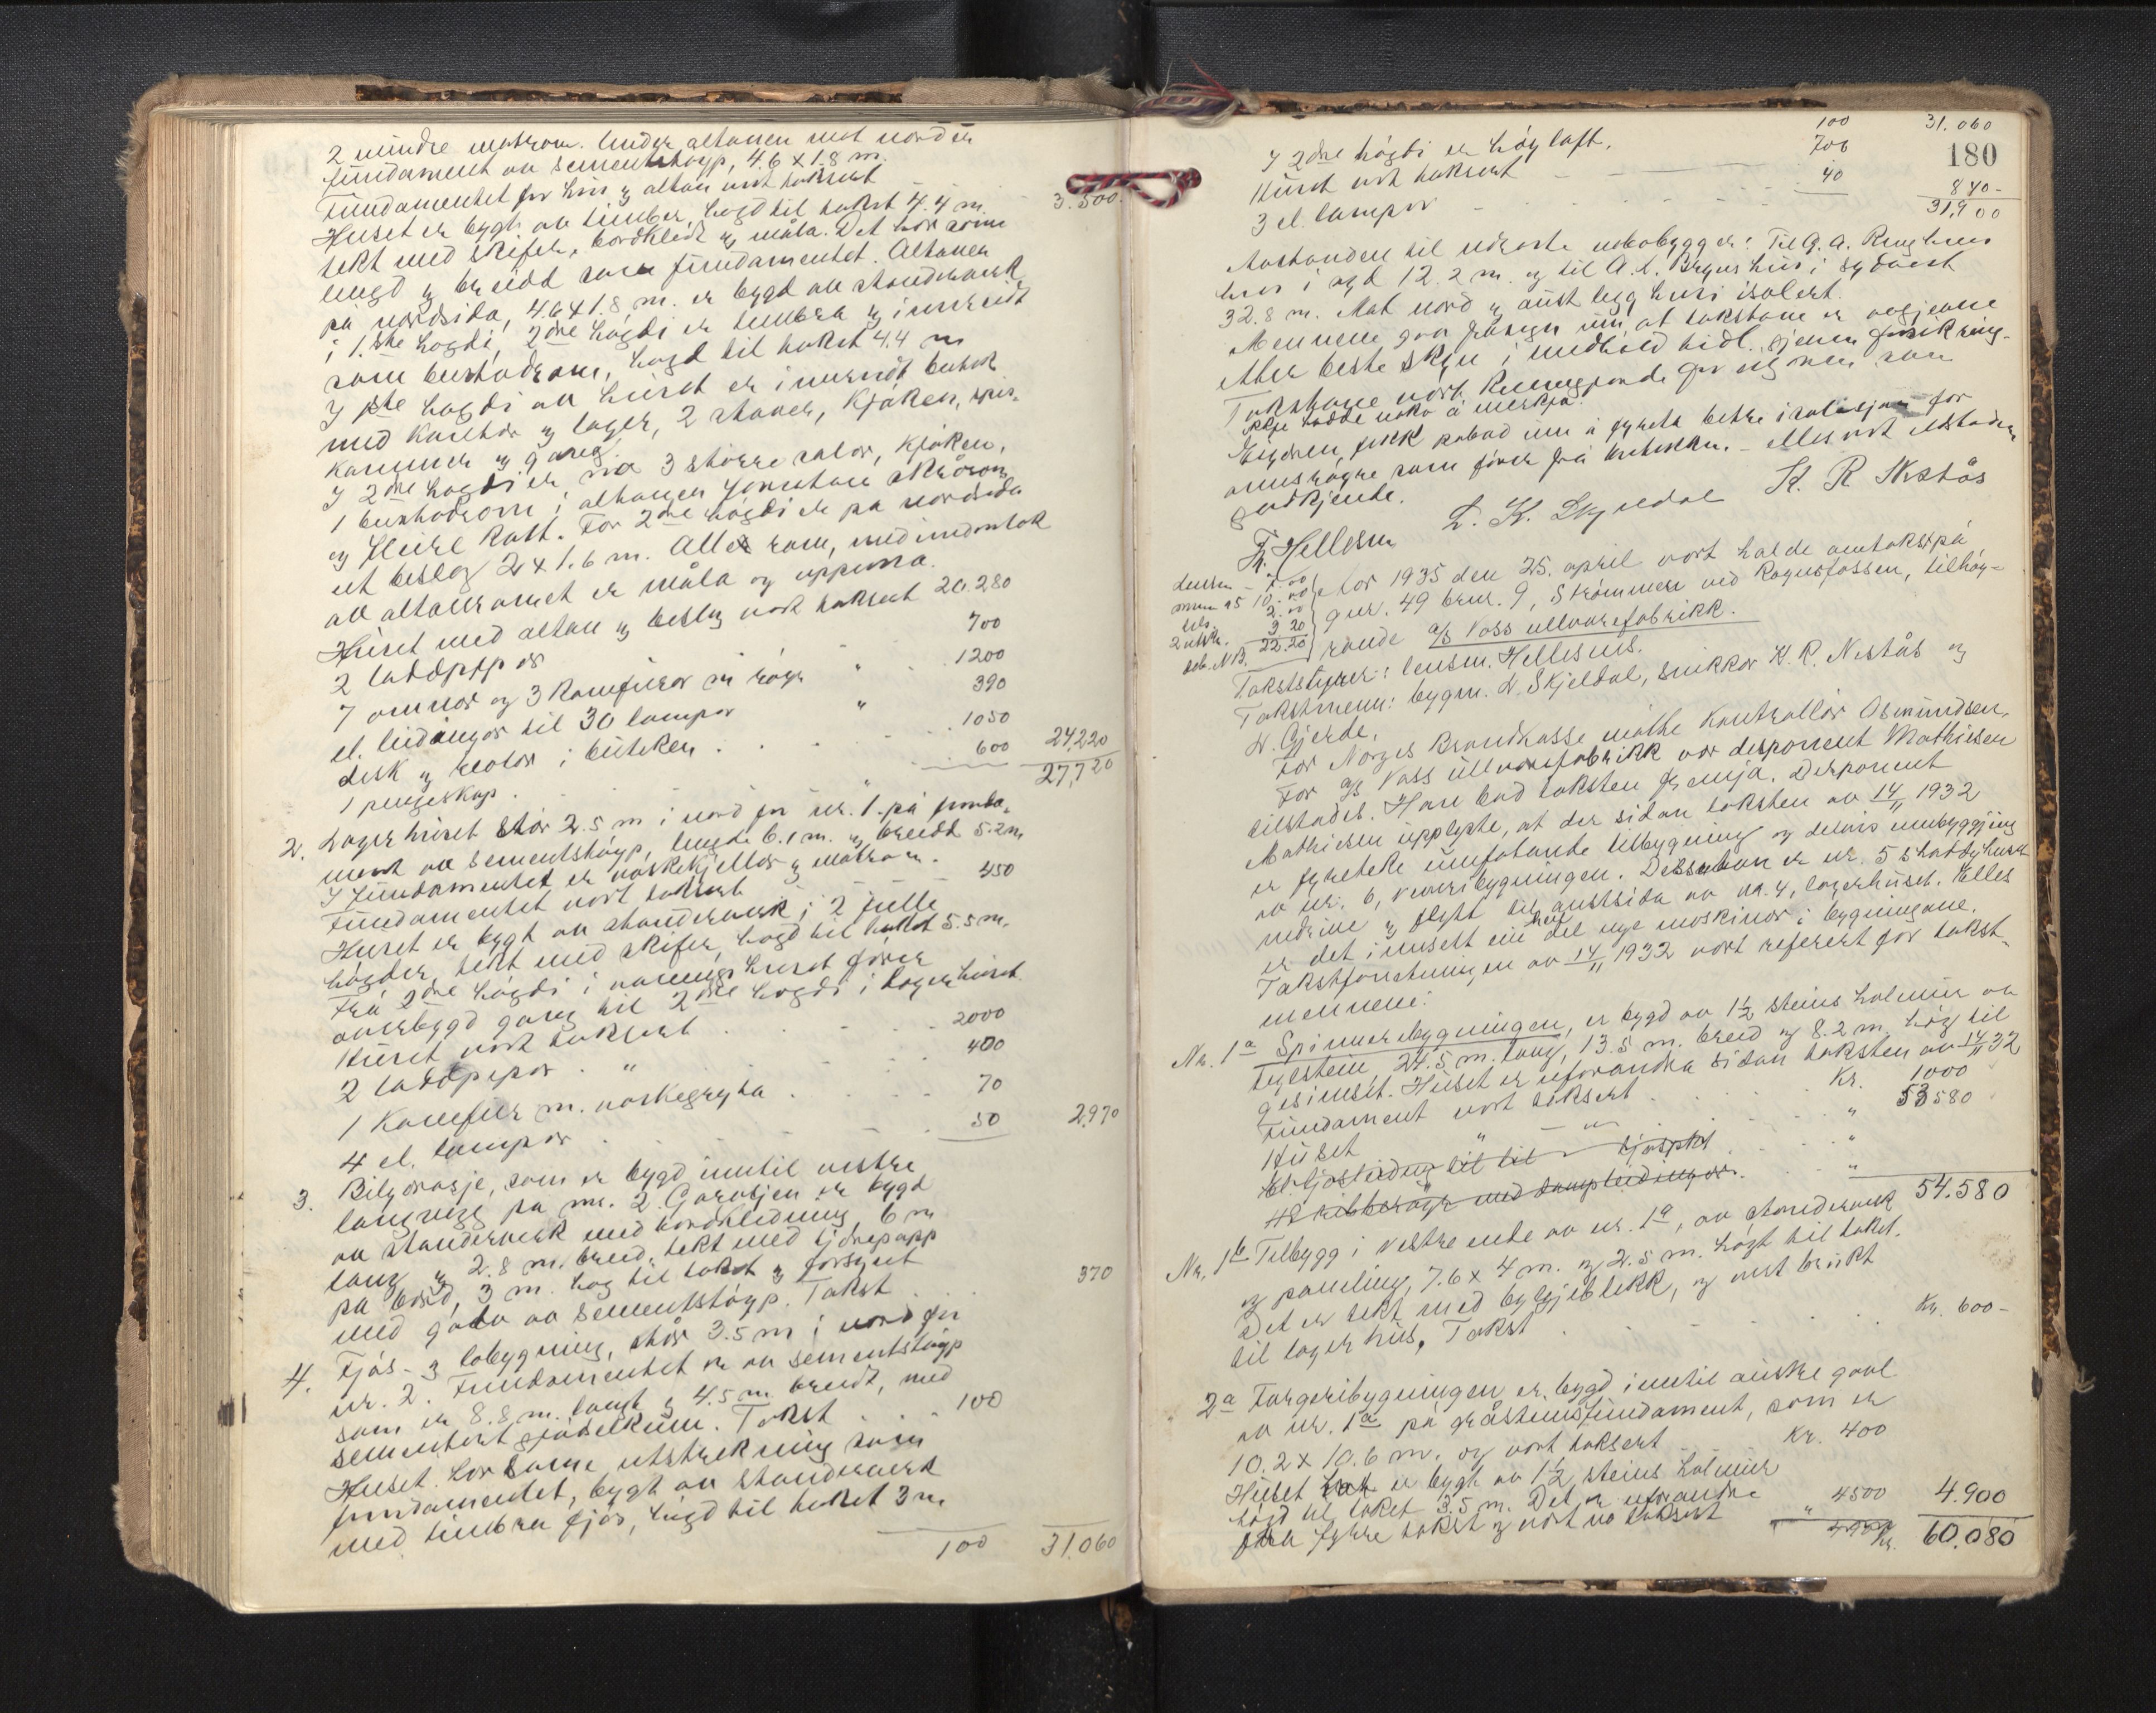 2 mindre matrom. Under altanen mot nord er
fundament av sementstøyp, 4.6 x 1.8 m.
Fundamentet for hus og altan vart taksert - 3.500.
Huset er bygt av timber, høgd til taket 7.4 m.
tekt med skifer, bordklædt og måla. Det har same
lengd og breidd som fundamentet. Altanen
på nordsida, 4.6 x 1.8 m. er bygd av standerverk
i 1.ste høgdi, 2dre høgdi er timbra og innreidt
som burhødrom, høgd til taket 4.4 m
I 1ste høgdi av huset er innreidt butikk
med kontor og lager, 2 stover, kjøken, spis-
kammer og gang.
I 2dre høgdi er no 3 større salar, kjøken,
1 burhødrom i altanen
og Kott. For 2dre høgdi er på nordsida
eit beslag 2 x 1.6 m. Alle rom, med undantak
av altanromet er måla og uppussa.
Huset med altan og beslag vart taksert 20.280
2 laddpipor 700
7 omnar og 3 komfurar m røyr " 1200
el. leidingar til 30 lampor " 390
disk og reolar i butiken . . . 1050
1 pengeskap . " 600 24,220
27,720
2. Lagerhuset står 2.5 m i nord for nr. 1. på funda-
ment av sementstøyp, lengde 6.1 m. og breidd 5.2 m
I fundamentet er vaskekjellar og matrom.
Fundamentet vart taksert 450
Huset er bygt av standerverk i 2 fulle
høgder, tekt med skifer, høgd til taket 5.5 m.
Frå 2dre høgdi i våningshuset fører
overbygd gang til 2dre høgdi i lagerhuset.
Huset vart taksert . . . . 2000
2 laddpipor . " . . 400
1 Komfur m. vaskegryta . . . 70
4 el. lampor . . . 50 2970
3. Bilgarasje, som er bygd inntil vestre
langvegg på nr. 2. Garasjen er bygd
av standerverk med bordkledning, 6 m
lang og 2.8 m. breid, tekt med tjørepapp
på bord, 3 m. høg til taket og forsynt
med golv av sementstøyp. Takst 370
4. Fjøs- og løbygning, står 3.5 m i nord for
nr. 2. Fundamentet er av sementstøyp
som er 8.8 m. langt og 4.5 m breidt, med
sementert gjødselkum. Takst . . . 100
Huset har same utstrekning som
fundamentet, bygt av standerverk
med timbra fjøs, høgd til taket 3 m
100 31.060
100 31.060
180
I 2dre høgdi er høyloft.
Huset vart taksert - - 700
3 el. lampor - - 40 840-
31,900
Avstanden til nøraste nabobygg er: Til G. A. Ringheims
hus i syd 12.2 m. og til A. L. Brynshus i sydvest
32.8 m. Mot nord og aust ligg husi isolert.
Mennene gav fråsegn um, at takstane er avgjevne
etter beste skjøn i medhald tidl. gjevne forsikring.
Takstane vart kunngjorde for eigaren som
ikkje hadde noko å merkja.
Eigaren fekk påbod um å syrgja betre isolasjon for
omnsrøyre som fører frå butikken. - Alles vart
godkjende.
Fr. Hellesen L. K. Skjeldal K. R. Nestås
Lensm - 7.00
menn a 5 10.00
bils. 2.00
2 utskr. 3 20
seb. NB. 22.20
År 1935 den 25. april vart halde omtakst på
gnr. 49 brnr. 9, Strømmen ved Rognsfossen, tilhøy-
rande a/s Voss ullvarefabrikk.
Takststyrer: lensm. Hellesens.
Takstmenn: bygm. L. Skjeldal, snikkar K. R. Nestås og
N. Gjerde.
For Norges Brandkasse møtte Kontrollør Osmundsen.
For a/s Voss ullvarefabrikk var disponent Mathiesen
tilstades. Han bad taksten fremja. Disponent
Mathiesen upplyste, at der sidan taksten av 14/11 1932
er fyretekе umfatande tilbygning og delvis umbyggjing
av nr. 6, veveribygningen. Dessutan er nr. 5
nedrive og flytt til austsida av nr. 4, lagerhuset. Elles
er det innsett ein heil del nye maskinor i bygningane.
Takstforretningen av 14/11 1932 vart referert for takst-
mennene:
Nr. 1a Spinneribygningen, er bygd av 1½ steins holmur av
teglstein, 24.5 m. lang, 13.5 m. breid og 8.2 m. høg til
gesimset. Huset er uforandra sidan taksten av 14/11 32
Fundament vart taksert . . . Kr. 1000
Huset " - " - . . . " 53580
54.580
Nr. 1b Tilbygg i vestre ende av nr. 1a, av standerverk
og paneling, 7.6 x 4 m. og 2.5 m. høgt til taket.
Det er tekt med bylgjeblikk, og vert brukt
til lagerhus. Takst . . . . Kr. 600-
2a Fargeribygningen er bygd inntil austre gavl
av nr. 1a på gråsteinsfundament, som er
10.2 x 10.6 m. og vart taksert Kr. 400
Huset er bygt av 1½ steins holmur
høgd til taket 3.5 m. Det er uforandra
frå fyrre takst og vart no taksert " 4500 4.900
Kr. 60.080